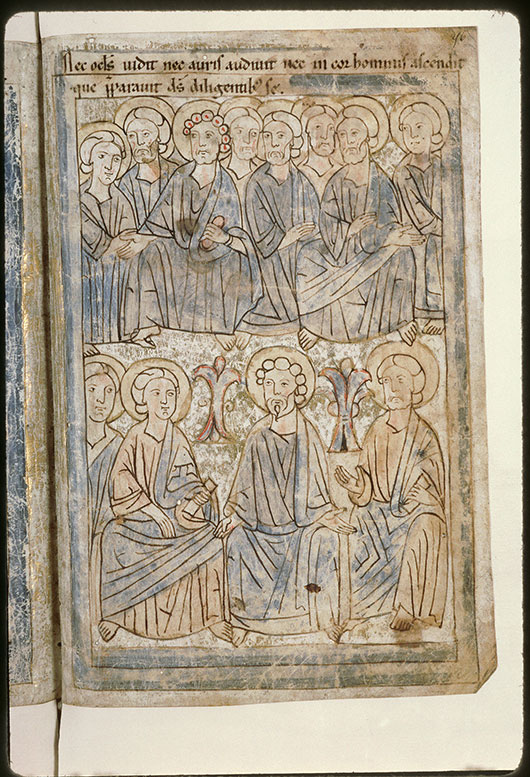 Nec ocls uidit nec auris audiuit nec in cor hominis ascendit
que pparauit ds diligentib; se.